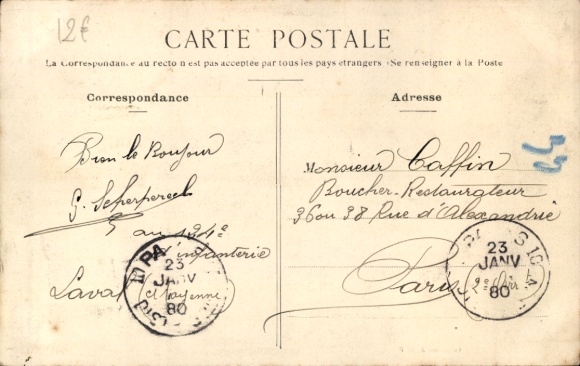 12€
CARTE POSTALE
La Correspondance au recto n'est pas acceptée par tous les pays étrangers (Se renseigner à la Poste
Correspondance
Bien le Bonjour
G. Scherpereel
au 124e
infanterie
Laval (Mayenne)
PA
23
JANV
80
Adresse
Monsieur Caffin
Boucher-Restaurateur
36 ou 38 Rue d'Alexandrie
Paris
2e Arr
23
JANV
80